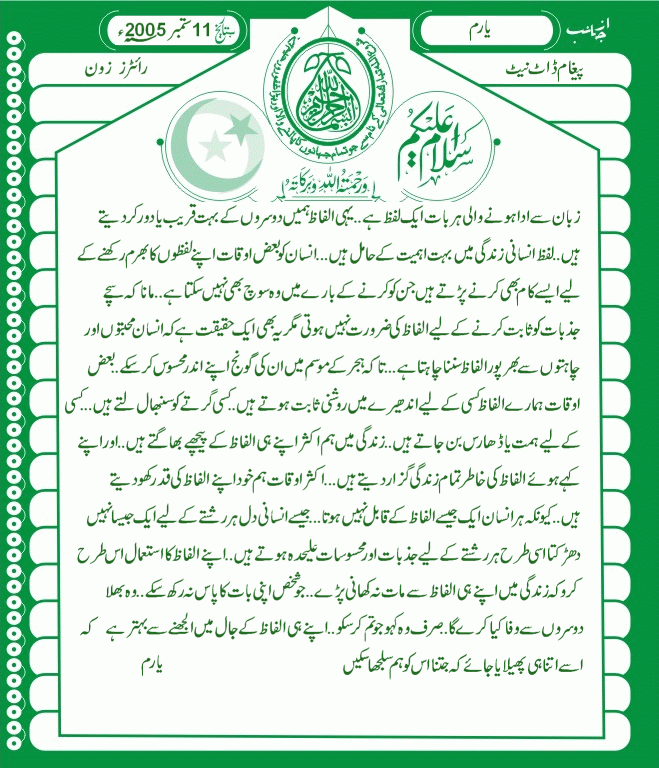 از جانب
یارم
بتاریخ 11 ستمبر 2005ء
پیغام ڈاٹ نیٹ
رائٹرز زون
السلام علیکم
ورحمتہ اللہ وبرکاتہ
زبان سے ادا ہونے والی ہر بات ایک لفظ ہے..یہی الفاظ ہمیں دوسروں کے بہت قریب یا دور کر دیتے
ہیں..لفظ انسانی زندگی میں بہت اہمیت کے حامل ہیں...انسان کو بعض اوقات اپنے لفظوں کا بھرم رکھنے کے
لیے ایسے کام بھی کرنے پڑتے ہیں جن کو کرنے کے بارے میں وہ سوچ بھی نہیں سکتا ہے..مانا کہ سچے
جذبات کو ثابت کرنے کے لیے الفاظ کی ضرورت نہیں ہوتی مگر یہ بھی ایک حقیقت ہے کہ انسان محبتوں اور
چاہتوں سے بھرپور الفاظ سننا چاہتا ہے...تا کہ ہجر کے موسم میں ان کی گونج اپنے اندر محسوس کر سکے..بعض
اوقات ہمارے الفاظ کسی کے لیے اندھیرے میں روشنی ثابت ہوتے ہیں..کسی گرتے کو سنبھال لتے ہیں...کسی
کے لیے ہمت یا ڈھارس بن جاتے ہیں..زندگی میں ہم اکثر اپنے ہی الفاظ کے پیچھے بھاگتے ہیں...اور اپنے
کہے ہوئے الفاظ کی خاطر تمام زندگی گزار دیتے ہیں...اکثر اوقات ہم خود اپنے الفاظ کی قدر کھو دیتے
ہیں..کیونکہ ہر انسان ایک جیسے الفاظ کے قابل نہیں ہوتا...جیسے انسانی دل ہر رشتے کے لیے ایک جیسا نہیں
دھڑکتا اسی طرح ہر رشتے کے لیے جذبات اور محسوسات علیحدہ ہوتے ہیں..اپنے الفاظ کا استعمال اس طرح
کرو کہ زندگی میں اپنے ہی الفاظ سے مات نہ کھانی پڑے..جو شخص اپنی بات کا پاس نہ رکھ سکے..وہ بھلا
دوسروں سے وفا کیا کرے گا..صرف وہ کہو جو تم کر سکو..اپنے ہی الفاظ کے جال میں الجھنے سے بہتر ہے کہ
اسے اتنا ہی پھیلایا جائے کہ جتنا اس کو ہم سلجھا سکیں یارم